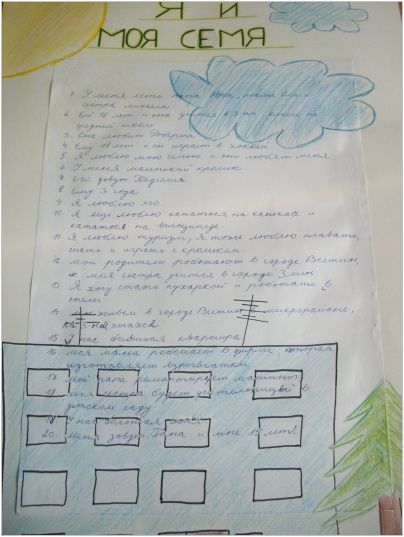 Я И
МОЯ СЕМЯ
1. У меня есть папа мама и
сестра
2. Ей 18 лет и она учится в на
средней школе
3. Она любит Роберта
4. Ему 18 лет и он играет в хоккей
5. Я люблю мою семю и они любят меня
6. У меня маленький кролик
7. Его зовут
8. Ему 3 года
9. Я люблю его
10. Я еще люблю кататься на коньках и
кататься на
11. Я люблю туризм, Я тоже люблю плавать,
спать и играть с кроликом
12. мои родители работают в городе
но моя сестра учится в городе
13. Я хочу стать кухаркой и работать в
отели
14. живем в городе микрорайоне,
этаже
15. У нас большая квартира
16. моя мама работает в фирме, которая
изготовляет
17. мой папа ремонтирует машины
18. моя сестра будет учительницей в
детском саду
19. У нас большая
20. меня зовут и мне 15 лет